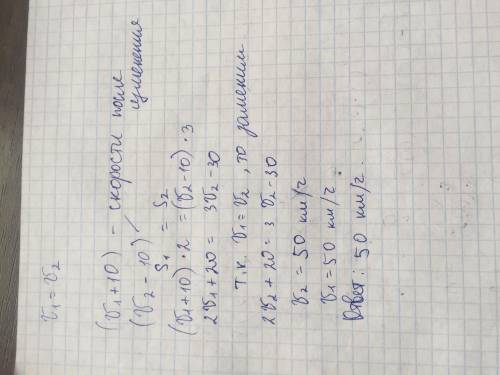 v₁ = v₂
(v₁+10) - скорости после
(v₂-10) изменения
S₁ = S₂
(v₁+10)·2 = (v₂-10)·3
2v₁+20 = 3v₂-30
т.к. v₁=v₂, то заменим
2v₂+20=3v₂-30
v₂ = 50 км/ч
v₁=50 км/ч
Ответ: 50 км/ч.